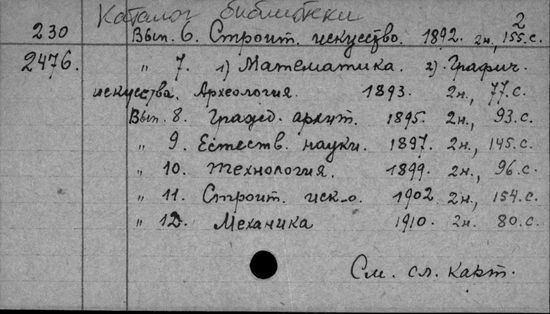 Каталог библиотеки 2
230 Вып. 6. Строит. искусство. 1892. 2н., 155.с.
2476. " 7. 1) Математика. 2) Графич.
искусства. Археология. 1893. 2н., 77.с.
Вып. 8. Гражд. архит. 1895. 2н., 93.с.
" 9. Естеств. науки. 1897. 2н., 145.с.
" 10. Технология. 1899. 2н., 96.с.
" 11. Строит. иск-о. 1902. 2н., 154.с.
" 12. Механика 1910. 2н. 80.с.
См. сл. карт.